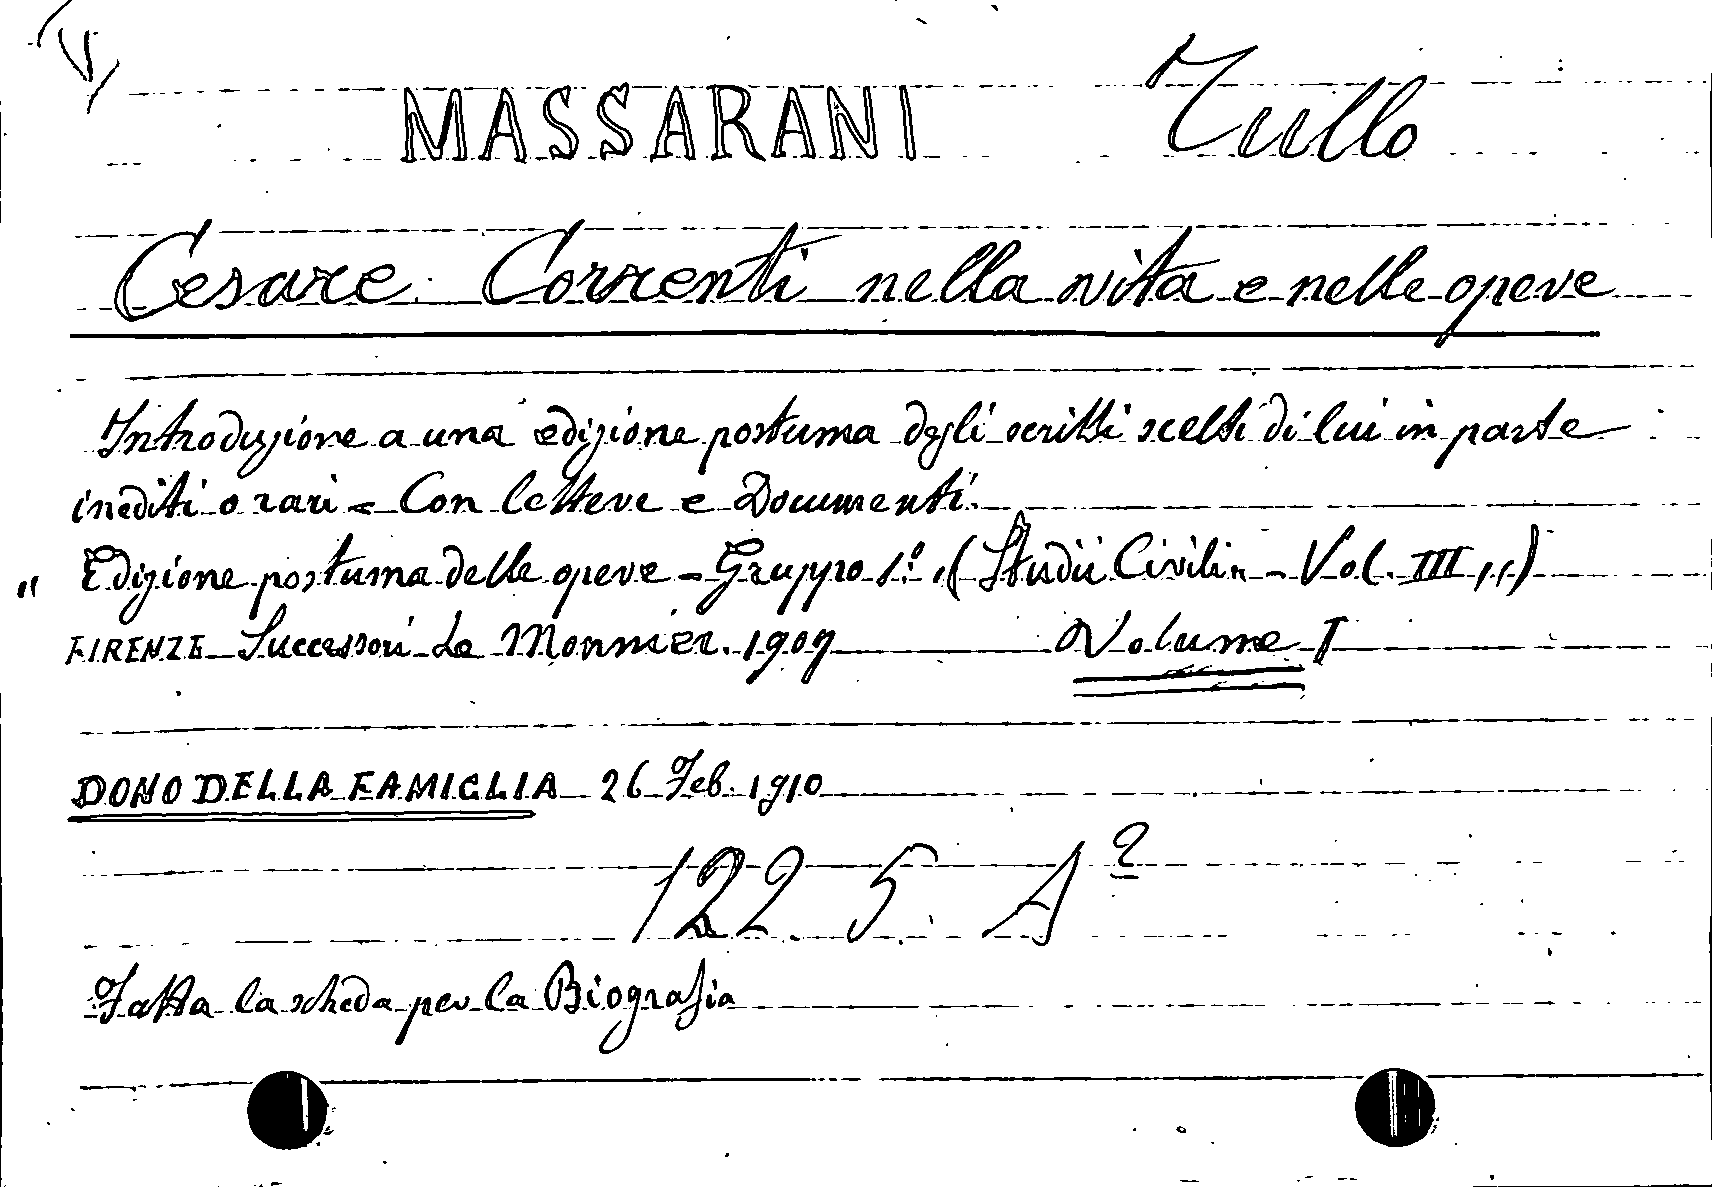 V
MASSARANI Tullo
Cesare Correnti nella vita e nelle opere
Introduzione a una edizione postuma degli scritti scelti di lui in parte
inediti o rari = Con lettere e Documenti.
" Edizione postuma delle opere - Gruppo 1º. (Studii Civili" - Vol. III,,)
FIRENZE Successori Le Monnier. 1909 Volume I
DONO DELLA FAMIGLIA 26 Feb. 1910
122. 5. A 2
Fatta la scheda per la Biografia